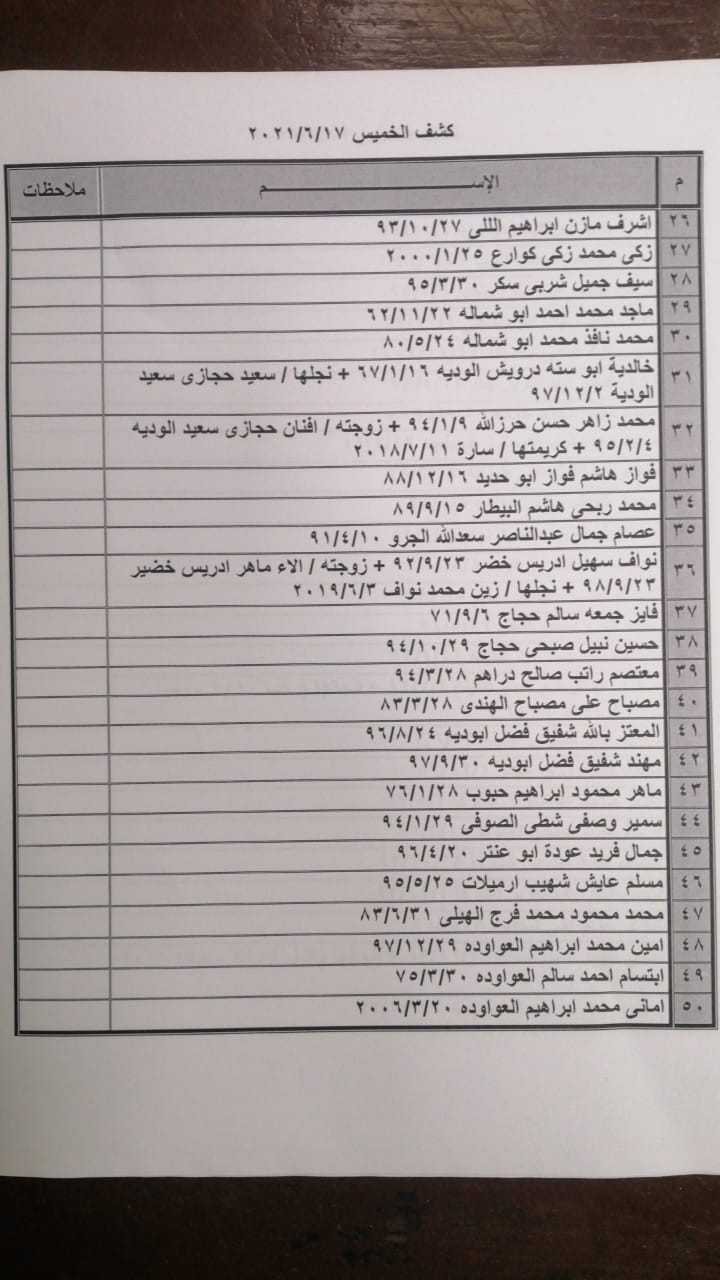 كشف الخميس ٢٠٢١/٦/١٧
م الإســــــم ملاحظات
٢٦ اشرف مازن ابراهيم اللى ٩٣/١٠/٢٧
٢٧ زكى محمد زكى كوارع ٢٠٠٠/١/٢٥
٢٨ سيف جميل شربى سكر ٩٥/٣/٣٠
٢٩ ماجد محمد احمد ابو شماله ٦٢/١١/٢٢
٣٠ محمد نافذ محمد ابو شماله ٨٠/٥/٢٤
٣١ خالدية ابو سته درويش الوديه ٦٧/١/١٦ + نجلها / سعيد حجازى سعيد
الودية ٩٧/١٢/٢
٣٢ محمد زاهر حسن حرزالله ٩٤/١/٩ + زوجته / افنان حجازى سعيد الوديه
٩٥/٢/٤ + كريمتها / سارة ٢٠١٨/٧/١١
٣٣ فواز هاشم فواز ابو حديد ٨٨/١٢/١٦
٣٤ محمد ربحى هاشم البيطار ٨٩/٩/١٥
٣٥ عصام جمال عبدالناصر سعدالله الجرو ٩١/٤/١٠
٣٦ نواف سهيل ادريس خضر ٩٢/٩/٢٣ + زوجته / الاء ماهر ادريس خضير
٩٨/٩/٢٣ + نجلها / زين محمد نواف ٢٠١٩/٦/٣
٣٧ فايز جمعه سالم حجاج ٧١/٩/٦
٣٨ حسين نبيل صبحى حجاج ٩٤/١٠/٢٩
٣٩ معتصم راتب صالح دراهم ٩٤/٣/٢٨
٤٠ مصباح على مصباح الهندى ٨٣/٣/٢٨
٤١ المعتز بالله شفيق فضل ابوديه ٩٦/٨/٢٤
٤٢ مهند شفيق فضل ابوديه ٩٧/٩/٣٠
٤٣ ماهر محمود ابراهيم حبوب ٧٦/١/٢٨
٤٤ سمير وصفى شطى الصوفى ٩٤/١/٢٩
٤٥ جمال فريد عودة ابو عنتر ٩٦/٤/٢٠
٤٦ مسلم عايش شهيب ارميلات ٩٥/٥/٢٥
٤٧ محمد محمود محمد فرج الهيلى ٨٣/٦/٣١
٤٨ امين محمد ابراهيم العواوده ٩٧/١٢/٢٩
٤٩ ابتسام احمد سالم العواوده ٧٥/٣/٣٠
٥٠ امانى محمد ابراهيم العواوده ٢٠٠٦/٣/٢٠